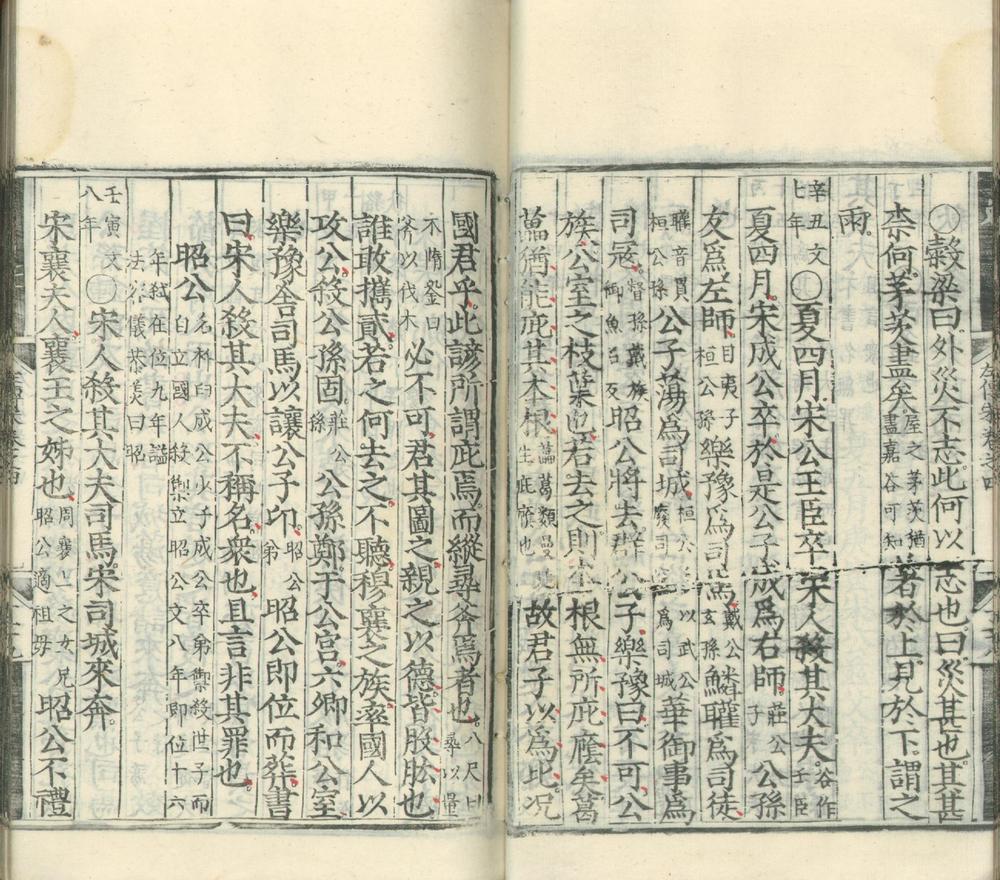 〇穀梁曰外災不志此何以志也曰災甚也其甚
柰何茅茨盡矣屋之茅茨猶盡嘉谷可知著於上見於下謂之
雨
辛丑文七年〇夏四月宋公王臣卒宋人殺其大夫谷作壬臣
夏四月宋成公卒於是公子成爲右師莊公子公孫
友爲左師目夷子桓公孫樂豫爲司馬戴公玄孫鱗矔爲司徒
矔音貫桓公孫公子蕩爲司城桓公以武公廢司空爲司城華御事爲
司冦督孫戴族御魚呂反昭公將去群公子樂豫曰不可公
族公室之枝葉也若去之則本根無所庇廕矣葛
藟猶能庇其本根藟葛類生庇廕也故君子以爲比况
國君乎此諺所謂庇焉而縱尋斧焉者也八尺曰尋以量
木隋銎曰斧以伐木必不可君其圖之親之以德皆股肱也
誰敢攜貳若之何去之不聽穆襄之族率國人以
攻公殺公孫固莊公孫公孫鄭于公宮六卿和公室
樂豫舍司馬以讓公子卬昭公弟昭公即位而葬書
曰宋人殺其大夫不稱名衆也且言非其罪也
昭公名杵臼成公少子成公卒弟禦殺世子而自立國人殺禦立昭公文八年即位十六
年弒在位九年謚法容儀恭美曰昭
壬寅文八年〇宋人殺其大夫司馬宋司城來奔
宋襄夫人襄王之姊也周襄王之女兄昭公適祖母昭公不禮